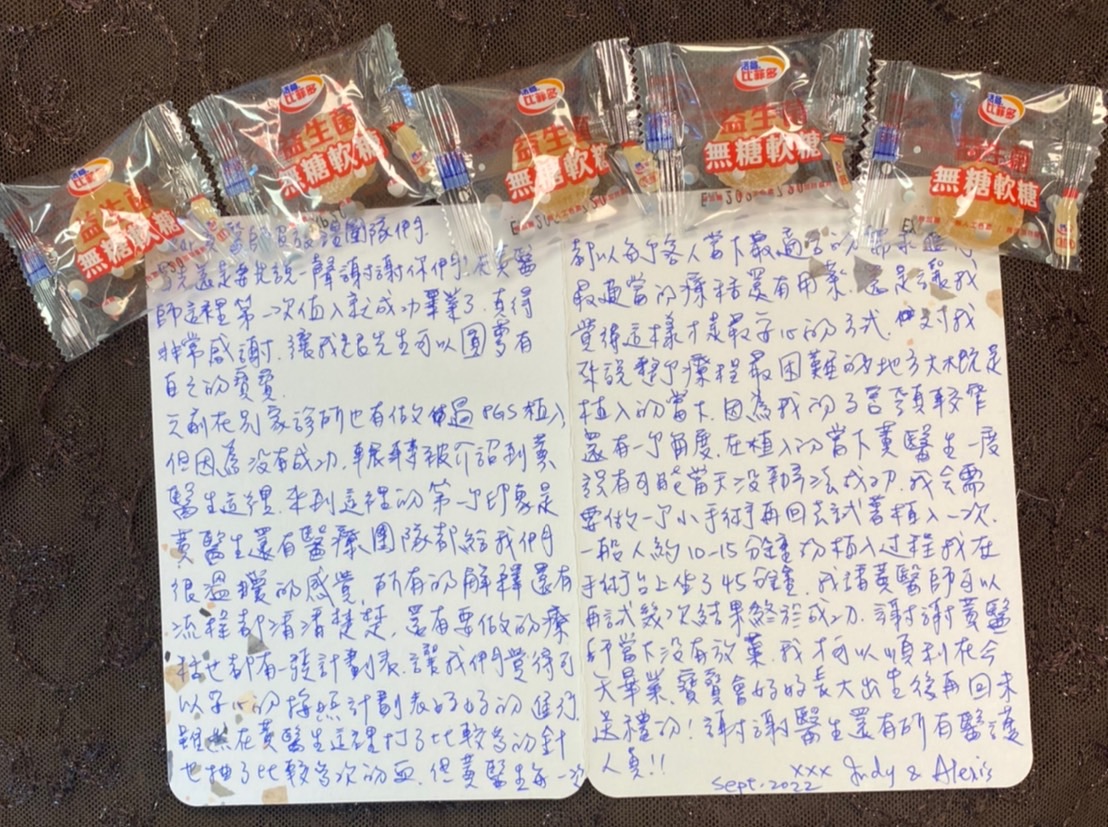 活益
比菲多
益生菌
無糖軟糖
活益
比菲多
益生菌
無糖軟糖
活益
比菲多
益生菌
無糖軟糖
活益
比菲多
益生菌
無糖軟糖
活益
比菲多
益生菌
無糖軟糖
醫師及救護團隊們
還是要先說一聲謝謝你們!在黃醫
師這裡第一次植入就成功畢業了.真得
非常感謝.讓我跟先生可以圓夢有
自己的寶寶.
之前在別家診所也有做過PGS植入,
但因為沒有成功.輾轉被介紹到黃
醫生這裡.來到這裡的第一个印象是
黃醫生還有醫療團隊都給我們
很溫暖的感覺,所有的解釋還有
流程都清清楚楚,還有要做的療
程也都有一張計劃表.讓我們覺得可
以安心的按照計劃表好好的進行.
雖然在黃醫生這裡打了比較多的針
也抽了比較多次的血.但黃醫生每一次
都以每个客人當下最適合的
最適當的療程還有用藥.還是
覺得這樣才是最安心的方式.對我
來說整个療程最困難的地方大概是
植入的當下.因為我的子宮頸較窄
還有一个角度.在植入的當下黃醫生一度
說有可能當天沒辦法成功.我會需
要做一个小手術再回去試著植入一次.
一般人約10-15分鐘的植入過程我在
手術台上坐了45分鐘.我請黃醫師可以
再試幾次結果終於成功.謝謝黃醫
師當下沒有放棄.我才可以順利在今
天畢業.寶寶會好好長大出生後再回來
送禮的!謝謝醫生還有所有醫護
人員!!
xxx Judy & Alexis
Sept.2022